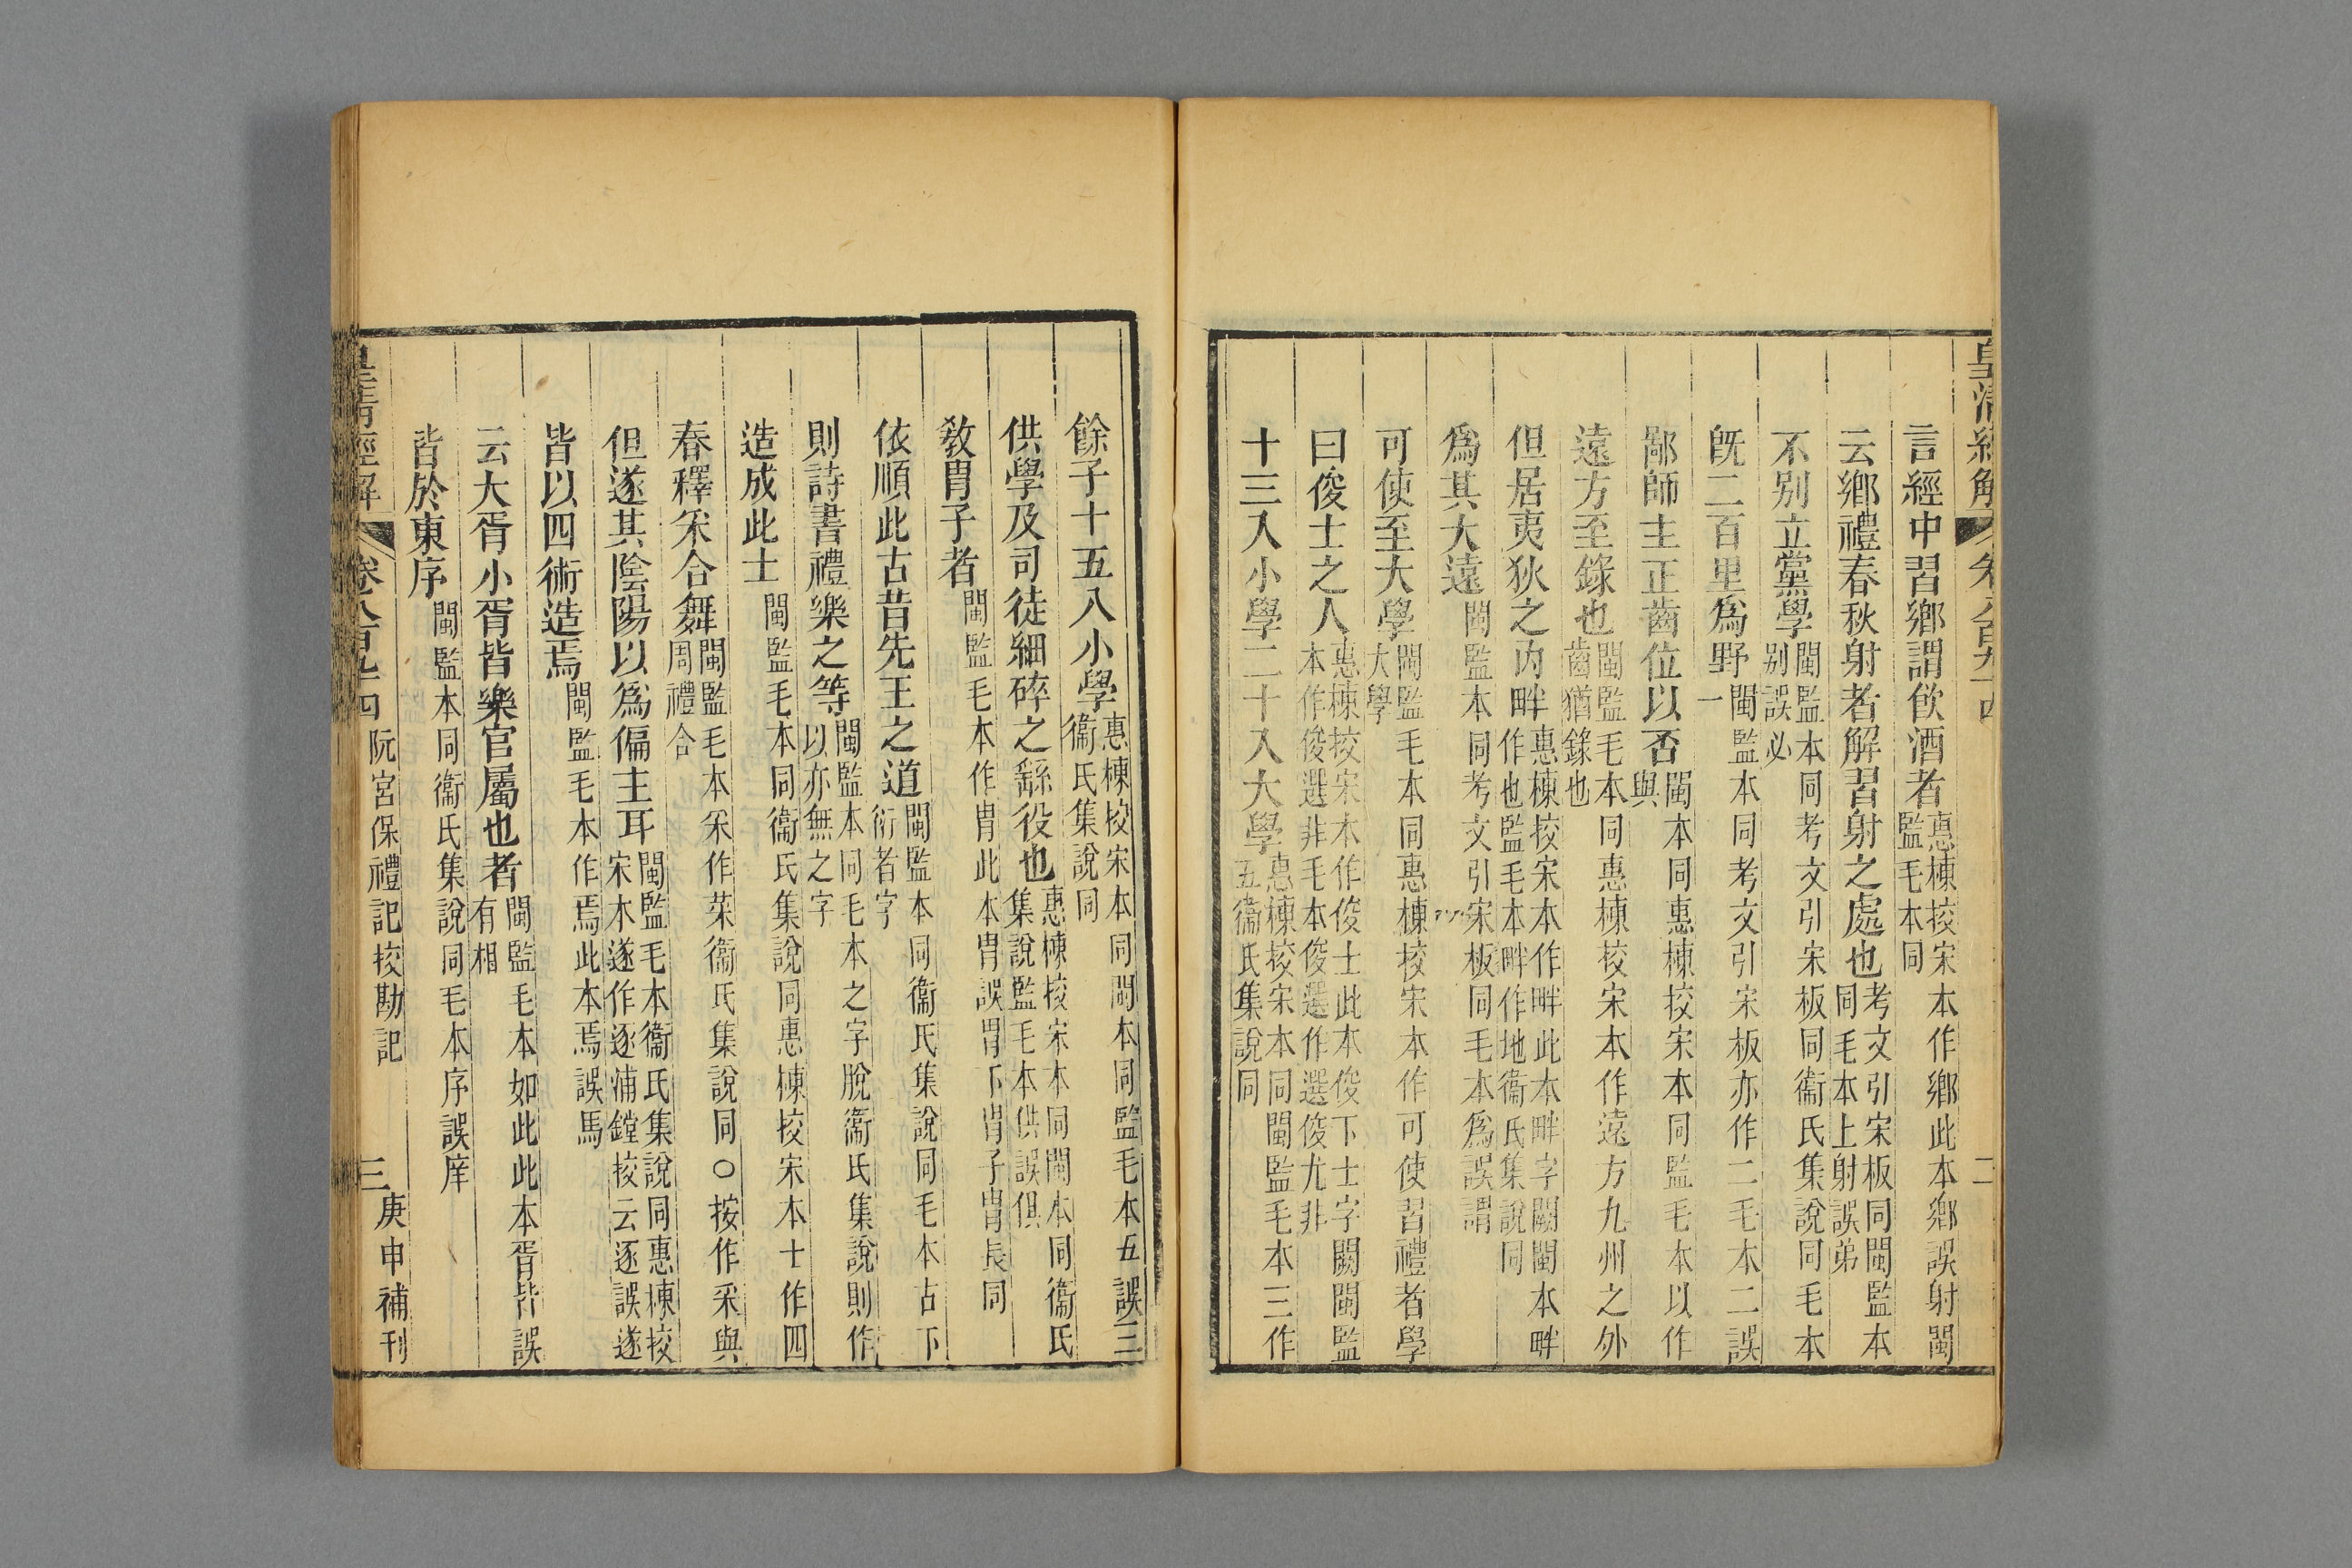 皇清經解 卷八百九十四 二
言經中習鄉謂飮酒者惠棟挍宋本作鄉此本鄉誤射閩監毛本同
云鄉禮春秋射者解習射之處也考文引宋板同閩監本同毛本上射誤弟
不別立黨學閩監本同考文引宋板同衞氏集說同毛本別誤必
旣二百里爲野閩監本同考文引宋板亦作二毛本二誤一
鄙師主正齒位以否閩本同惠棟挍宋本同監毛本以作與
遠方至錄也閩監毛本同惠棟挍宋本作遠方九州之外齒猶錄也
但居夷狄之内畔惠棟挍宋本作畔此本畔字闕閩本畔作也監毛本畔作地衞氏集說同
爲其大遠閩監本同考文引宋板同毛本爲誤謂
可使至大學閩監毛本同惠棟挍宋本作可使習禮者學大學
曰俊士之人惠棟挍宋本作俊士此本俊下士字闕閩監本作俊選非毛本俊選作選俊尤非
十三入小學二十入大學惠棟挍宋本同閩監毛本三作五衞氏集說同
餘子十五入小學惠棟挍宋本同閩本同監毛本五誤三衞氏集說同
供學及司徒細碎之繇役也惠棟挍宋本同閩本同衞氏集說監毛本供誤俱
敎胄子者閩監毛本作胄此本胄誤冑下胄子胄長同
依順此古昔先王之道閩監本同衞氏集說同毛本古下衍者字
則詩書禮樂之等閩監本同毛本之字脫衞氏集說則作以亦無之字
造成此士閩監毛本同衞氏集說同惠棟挍宋本士作四
春釋釆合舞閩監毛本釆作菜衞氏集說同○按作釆與周禮合
但遂其陰陽以爲偏主耳閩監毛本衞氏集說同惠棟挍宋本遂作逐浦鏜挍云逐誤遂
皆以四術造焉閩監毛本作焉此本焉誤馬
云大胥小胥皆樂官屬也者閩監毛本如此此本胥皆誤有相
皆於東序閩監本同衞氏集說同毛本序誤庠
皇清經解 卷八百九十四 阮宮保禮記挍勘記 三 庚申補刊